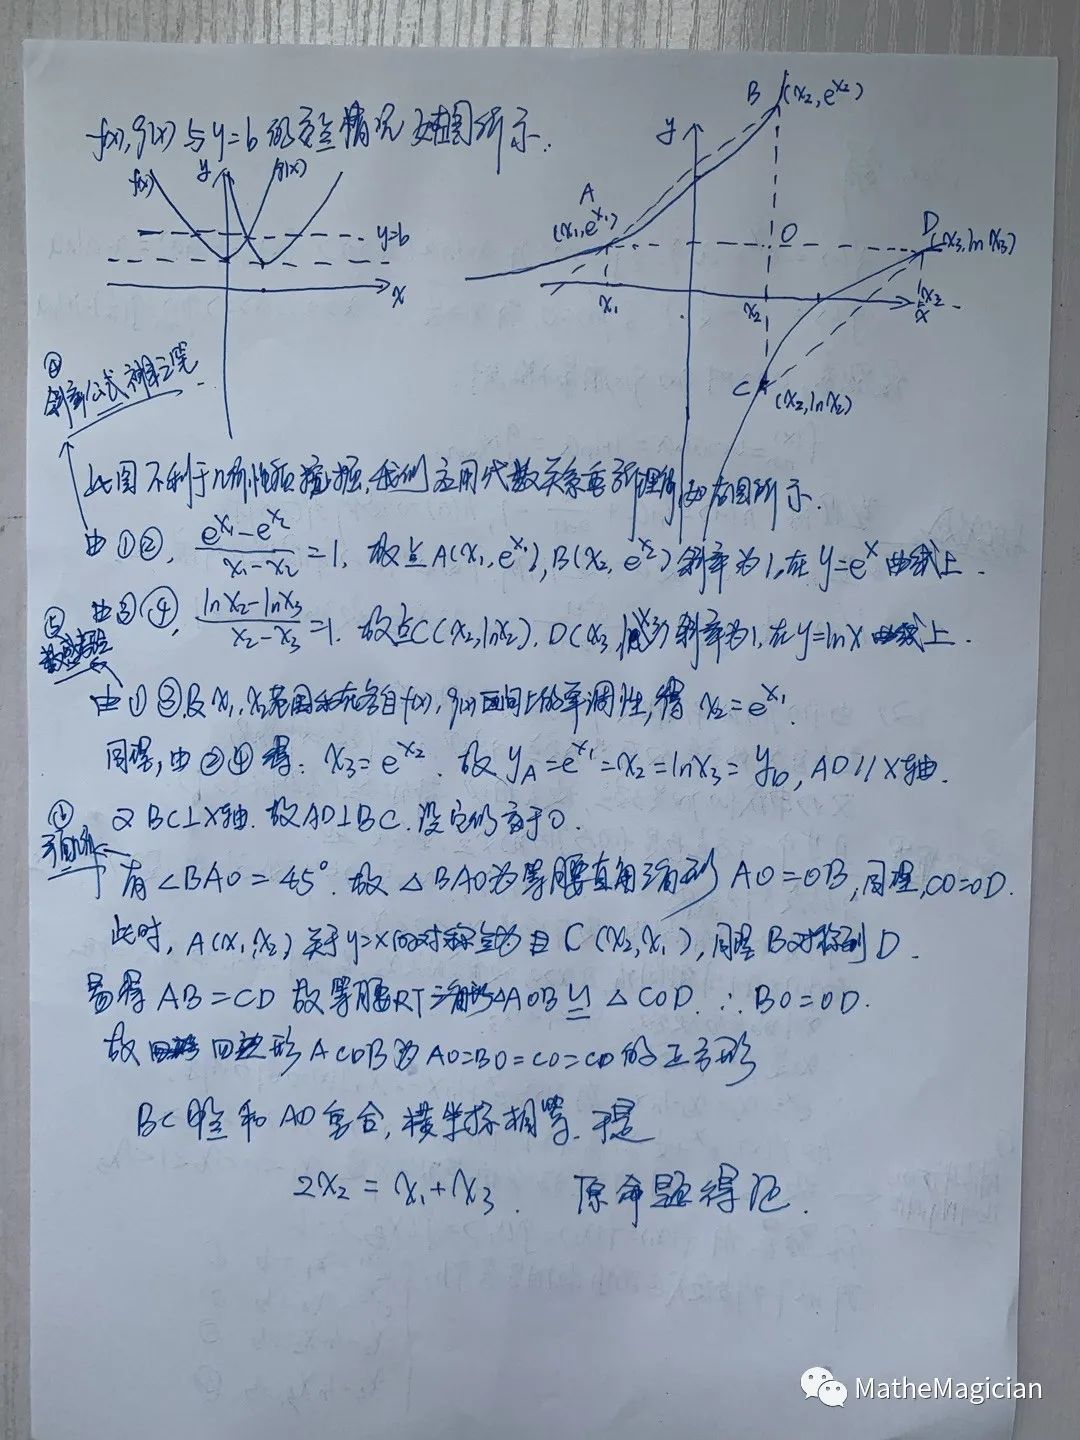 f(x), g(x) 与 y=b 的交点情况如图所示.
f(x) y g(x)
y=b
x
y
B (x₂, e^{x₂})
A
(x₁, e^{x₁})
O
D
(x₃, ln x₃)
x₁
x₂
x₃
x
C
(x₂, ln x₂)
④
斜率公式
此图不利于几何性质挖掘, 我们应用代数关系重新理解 如右图所示.
由①②, \frac{e^{x₁}-e^{x₂}}{x₁-x₂}=1, 故点A(x₁, e^{x₁}), B(x₂, e^{x₂})斜率为1, 在y=e^x曲线上.
⑤
由③④, \frac{ln x₂-ln x₃}{x₂-x₃}=1. 故点C(x₂, ln x₂), D(x₃, ln x₃)斜率为1, 在y=ln x曲线上.
由①③及x₁, x₂范围和在各自f(x), g(x)区间上的单调性, 得 x₂=e^{x₁}.
同理, 由②④得: x₃=e^{x₂}. 故 y_A=e^{x₁}=x₂=ln x₃=y_D, AD∥x轴.
⑥
又BC⊥x轴. 故AD⊥BC. 设它们交于O.
有∠BAO=45°. 故△BAO为等腰直角三角形 AO=OB, 同理, CO=OD.
此时, A(x₁, x₂)关于y=x的对称点为 C(x₂, x₁), 同理B对称到D.
易得AB=CD 故等腰RT三角形△AOB≌△COD. ∴BO=OD.
故 四边形ACDB为AO=BO=CO=CD的正方形
BC中点和AD重合, 横坐标相等. 于是
2x₂=x₁+x₃. 原命题得证.
MatheMagician